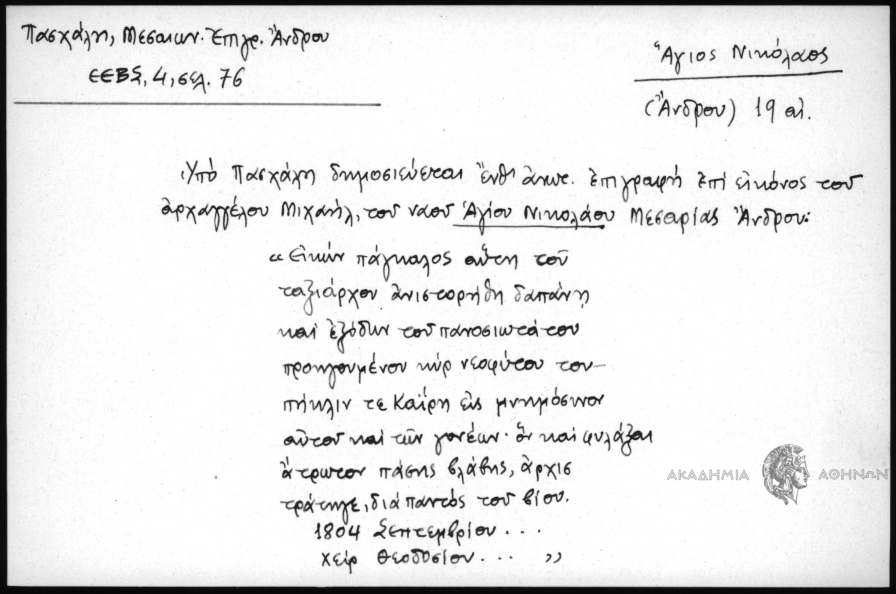 Πασχάλη, Μεσαιων. Ἐπιγρ. Ἄνδρου
ΕΕΒΣ, 4, σελ. 76
Ἅγιος Νικόλαος
(Ἄνδρου) 19 αἰ.
Ὑπό Πασχάλη δημοσιεύεται ἔνθ' ἀνωτ. ἐπιγραφή ἐπί εἰκόνος τοῦ
ἀρχαγγέλου Μιχαήλ, τοῦ ναοῦ Ἁγίου Νικολάου Μεσαρίας Ἄνδρου:
"Εἰκών πάγκαλος αὕτη τοῦ
ταξιάρχου ἀνιστορήθη δαπάνῃ
καί ἐξόδων τοῦ πανοσιωτάτου
προηγουμένου κύρ νεοφύτου τοὐ-
πήκλιν τε Καΐρη εἰς μνημόσυνον
αὐτοῦ καί τῶν γονέων· ὅν καί φυλάξαι
ἄτρωτον πάσης βλάβης, ἀρχισ
τράτηγε, διά παντός τοῦ βίου.
1804 Σεπτεμβρίου ...
χείρ Θεοδοσίου ... "
ΑΚΑΔΗΜΙΑ ΑΘΗΝΩΝ